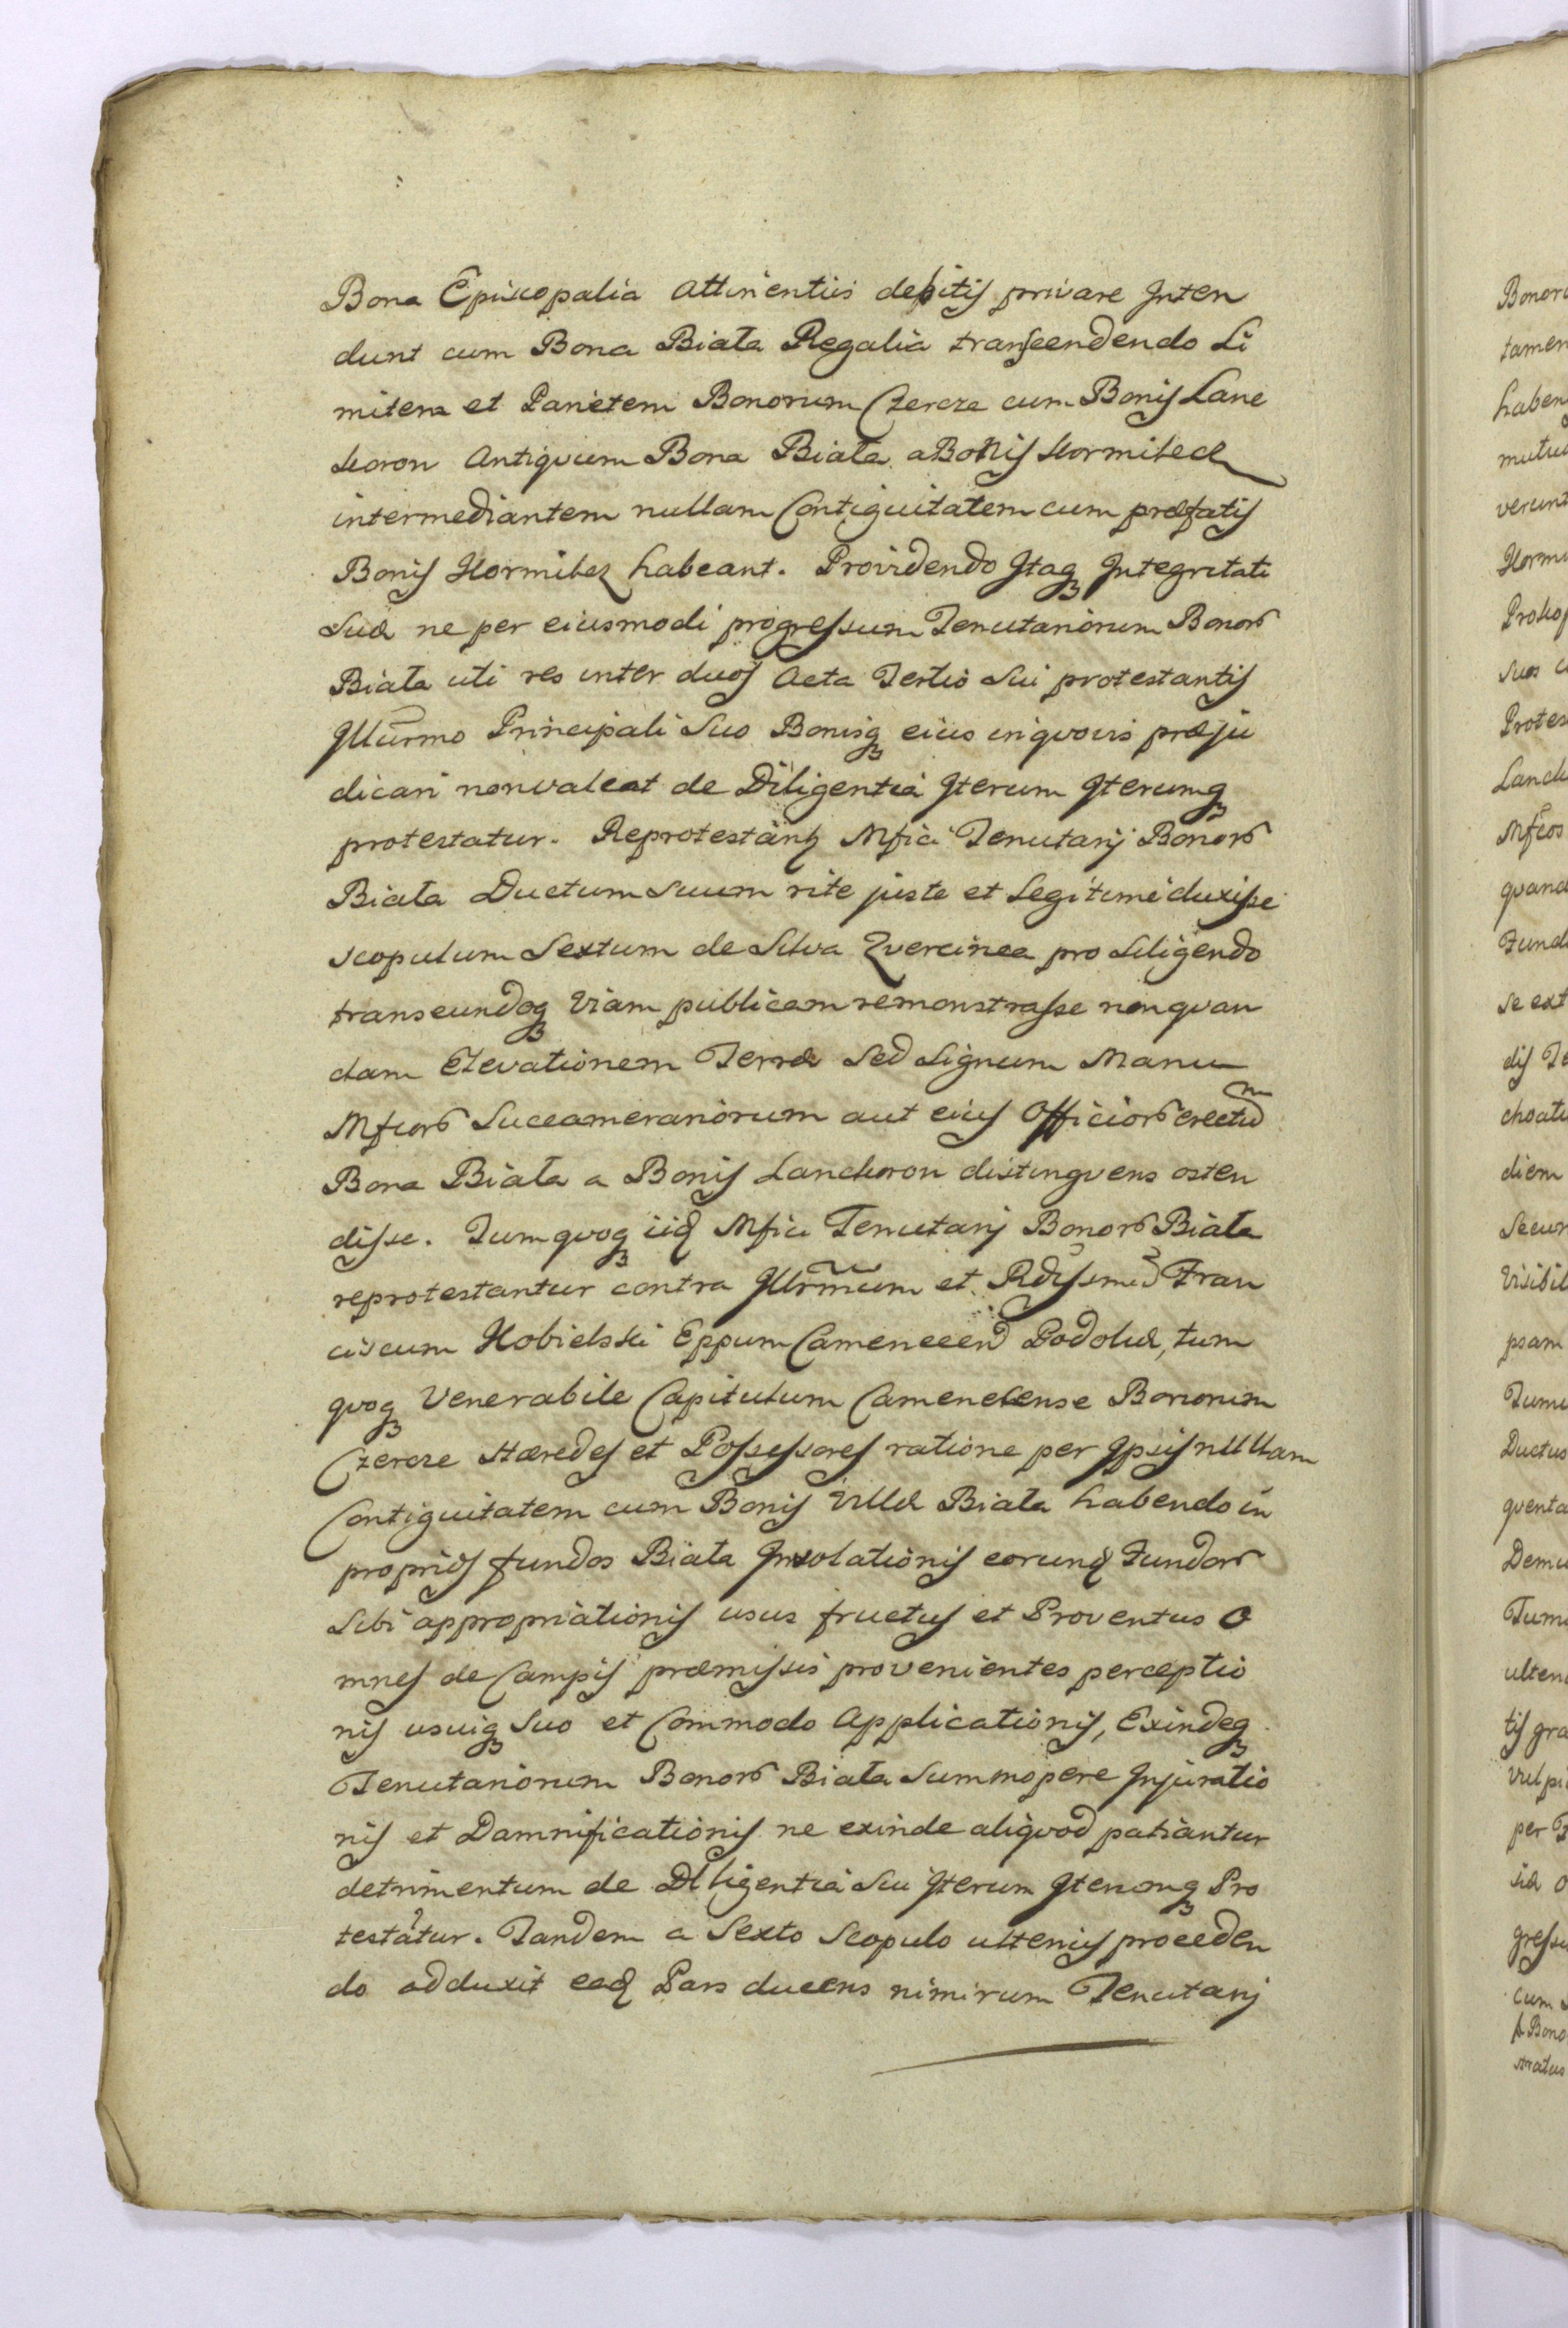 Bona Episcopalia Attinentiis debitis privare Inten
dunt cum Bona Biała Regalia transcendendo Li
mitem et Parietem Bonorum Czercze cum Bonis Lanc
koron Antiquum Bona Biała a Bonis Hormilecz
intermediantem nullam Contiguitatem cum præfatis
Bonis Hormilecz habeant. Providendo Itaq Integritati
Suæ ne per eiusmodi progressum Tenutariorum Bonor
Biała uti res inter duos Acta Tertio Sui protestantis
Illurmo Principali Suo Bonisq eius in quovis præju
dicari non valeat de Diligentia Iterum Iterumq
protestatur. Reprotestantq Mfici Tenutarij Bonor
Biała Ductum Suum rite juste et Legitime duxisse
scopulum Sextum de Silva Quercinea pro Seligendo
transeundoq Viam publicam remonstrasse non quan
dam Elevationem Terræ Sed Signum Manu
Mficor Succamerariorum aut eius Officior erectum
Bona Biała a Bonis Lanckoron distinguens osten
disse. Tum quoq iid Mfici Tenutarij Bonor Biała
reprotestantur contra Illrmum et Rdissmu Fran
ciscum Kobielski Eppum Camenecen Podoliæ, tum
quoq Venerabile Capitulum Camenecense Bonorum
Czercze Hæredes et Possessores ratione per Ipsis nullam
Contiguitatem cum Bonis Villæ Biała habendo in
proprios fundos Biała Inviolationis eorund Fundor
Sibi appropriationis usus fructus et Proventus O
mnes de Campis præmissis provenientes perceptio
nis usuiq Suo et Commodo Applicationis, Exindeq
Tenutariorum Bonor Biała Summopere Injuratio
nis et Damnificationis ne exinde aliquod patiantur
detrimentum de Diligentia Sui Iterum Iterumq Pro
testatur. Tandem a Sexto Scopulo ulterius proceden
do adduxit ead Pars ducens nimirum Tenutarij